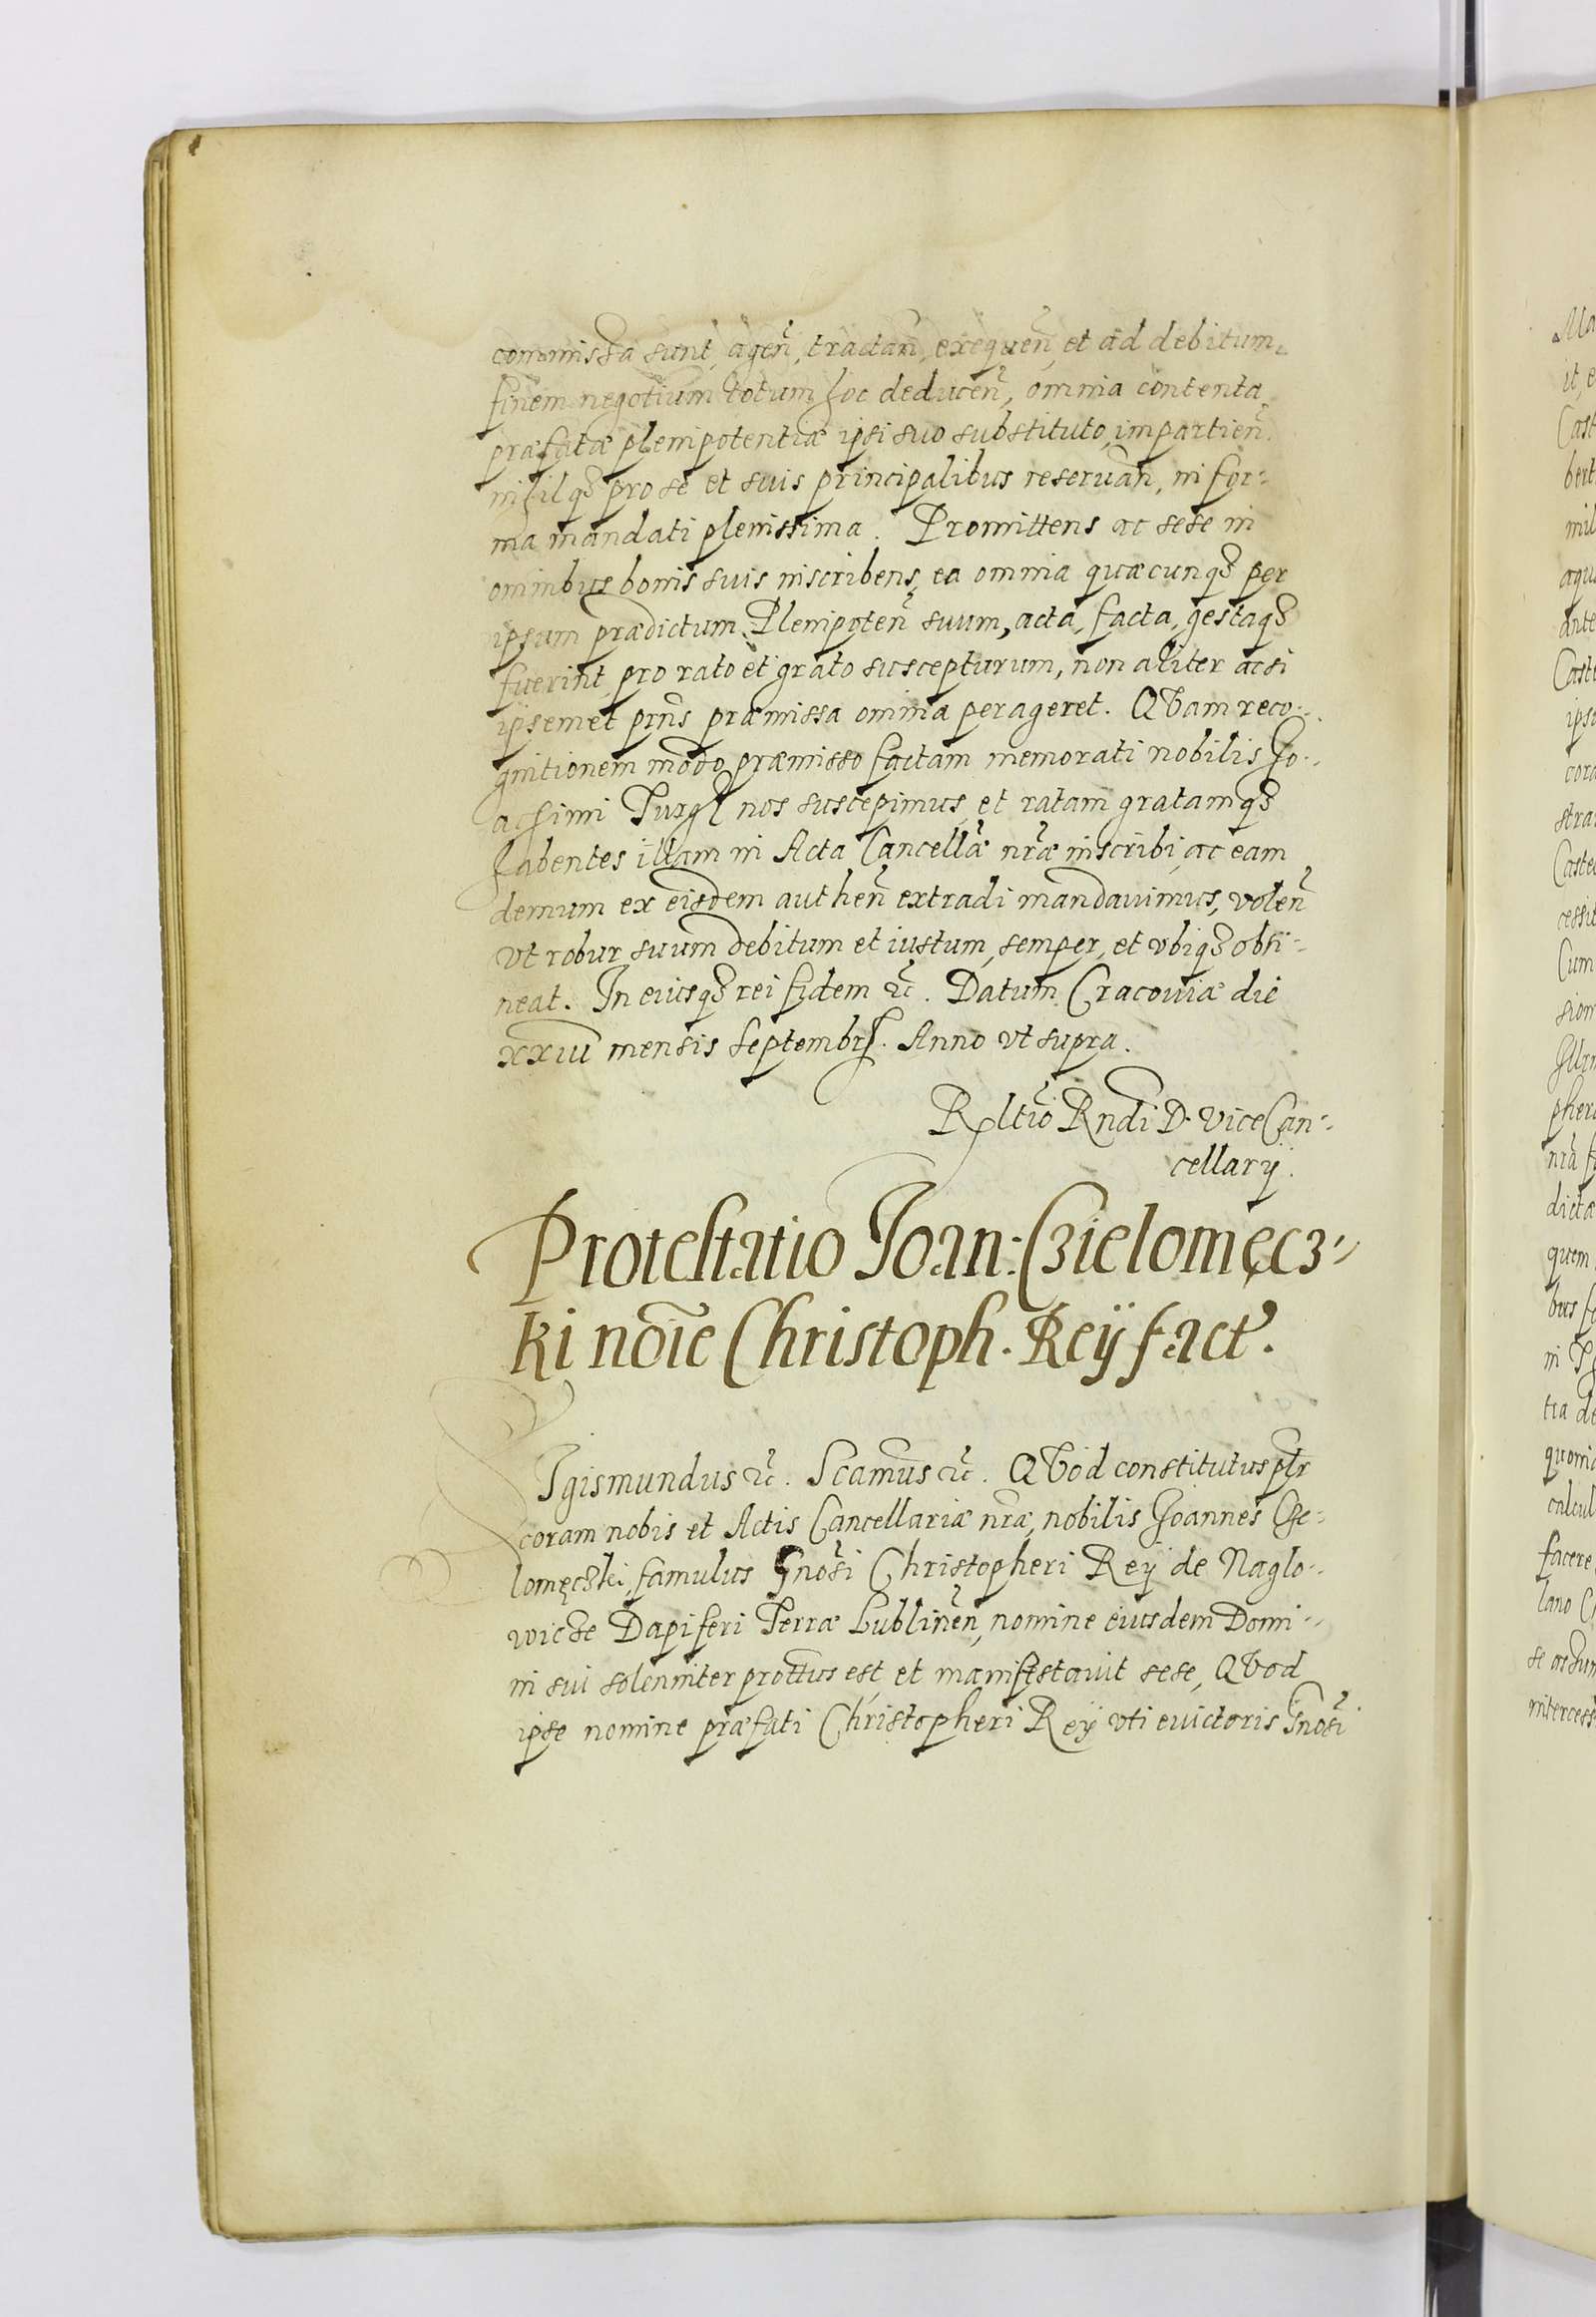 commissa sunt, agen̄, tractan̄, exequen̄, et ad debitum
finem negotium totum hoc deducen̄, omnia contenta
præfatæ plenipotentiæ ipsi suo substituto, impartien̄.
nihilqȝ pro se et suis principalibus reseruan̄, in for-
ma mandati plenissima. Promittens ac sese in
omnibus bonis suis inscribens, ea omnia quæcunqȝ per
ipsum prædictum Plenipoten̄ suum, acta, facta, gestaqȝ
fuerint, pro rato et grato suscepturum, non aliter acsi
ipsemet prn̄s præmissa omnia perageret. QVam reco-
gnitionem modo præmisso factam memorati nobilis Jo-
achimi Purgl nos suscepimus, et ratam gratamqȝ
habentes illam in Acta Cancellæ nr̄æ inscribi, ac eam
demum ex eisdem authen̄ extradi mandauimus, volen̄
vt robur suum debitum et iustum, semper, et vbiqȝ obti-
neat. In euiusqȝ rei fidem &c. Datum Cracouiæ die
xxiii mensis Septembr. Anno vt supra.
Rltio Rndi D. ViceCan-
cellarij.
Protestatio Joan: Czielomęcz-
ki noīe Christoph. Reij fact.
SIgismundus &c. Scamus &c. QVod constitutus pltr
coram nobis et Actis Cancellariæ nr̄æ, nobilis Joannes Cze-
lomęczki, famulus Gnosi Christopheri Reij de Naglo-
wicze Dapiferi Terræ Lublinen̄, nomine eiusdem Domi-
ni sui solenniter prottus est et manifestauit sese, QVod
ipse nomine præfati Christopheri Reij vti euictoris Gnosi